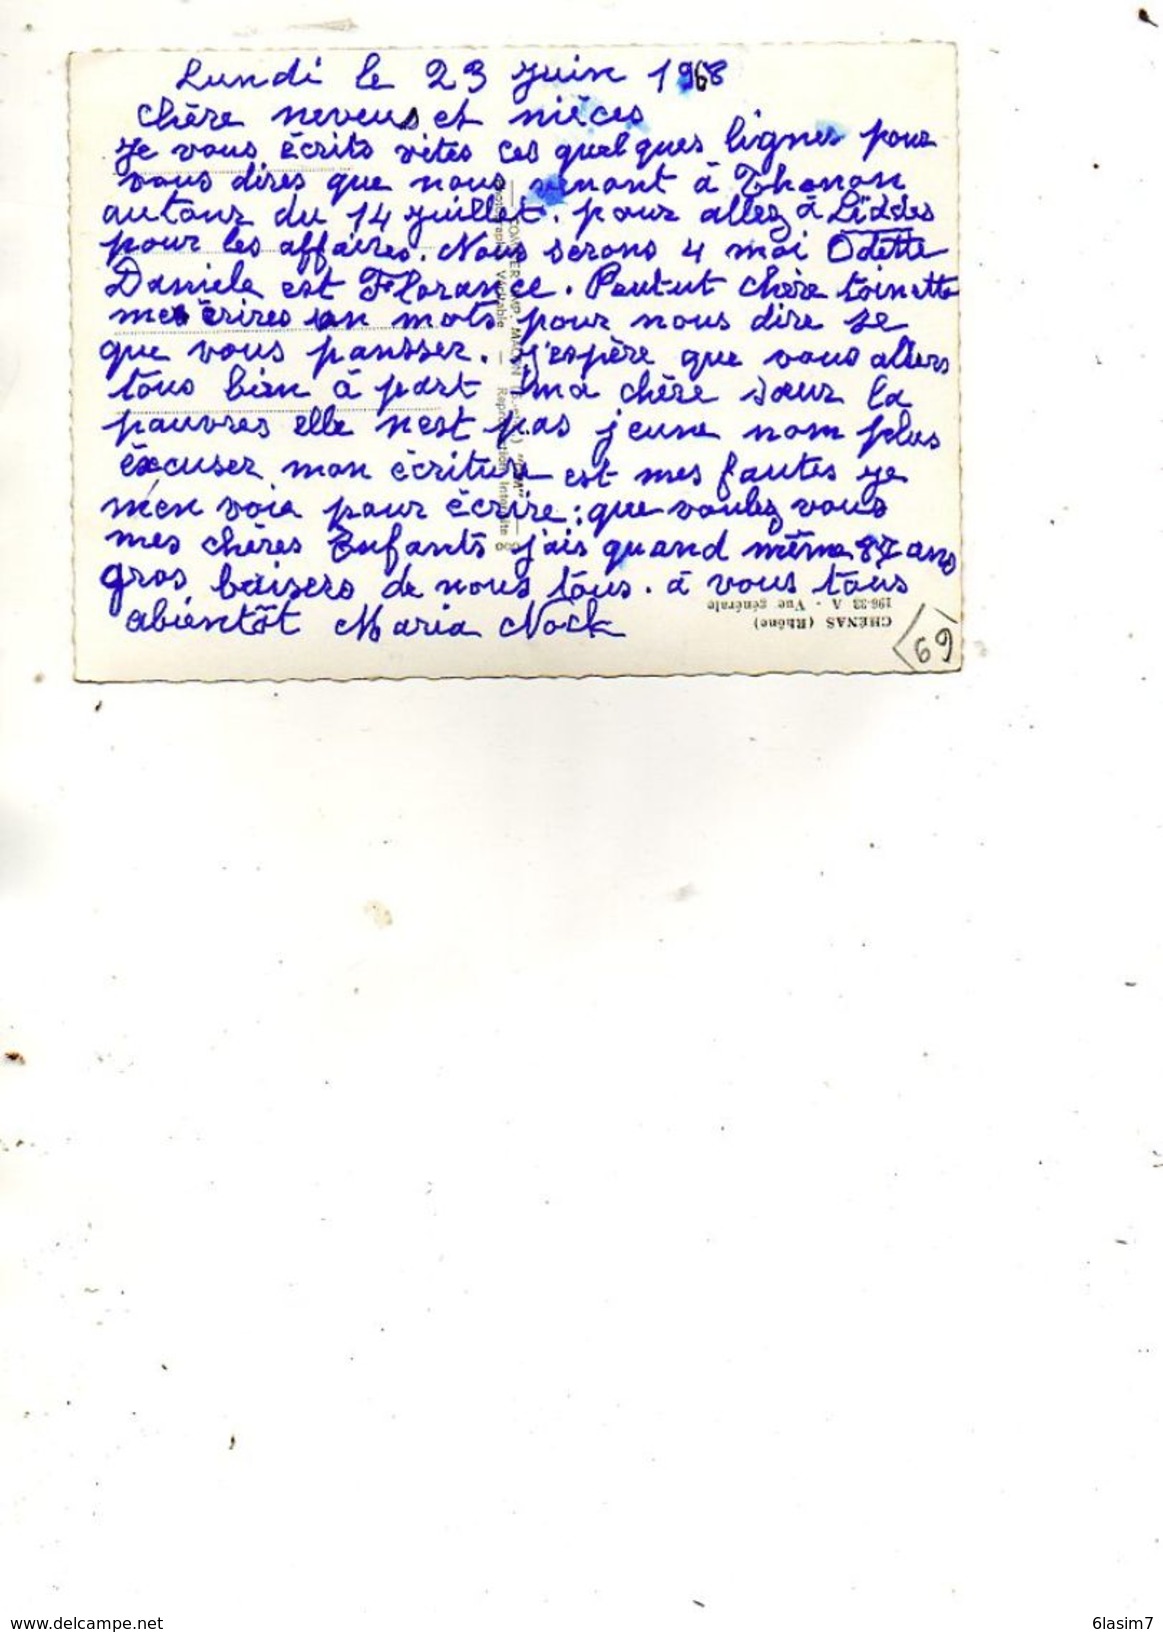 Lundi le 23 juin 1968
chère neveus et nièces
je vous écrits vites ces quelques lignes pour
vous dires que nous venont à Thonon
autour du 14 juillet. pour allez à Liddes
pour les affaires. Nous serons 4 moi Odette
Daniele est Florance. Peut-ut chère toinette
mes érires un mots pour nous dire se
que vous pansser. j'espère que vous allers
tous bien à part ma chère sœur la
pauvres elle n'est pas jeune nom plus
éxcuser mon écriture est mes fautes je
m'en voie pour écrire: que voulez vous
mes chères Enfants j'ais quand même 87 ans
gros baisers de nous tous. à vous tous
abientôt Maria Nock
CHÉNAS (Rhône)
196-33 A - Vue générale
69
www.delcampe.net
6lasim7